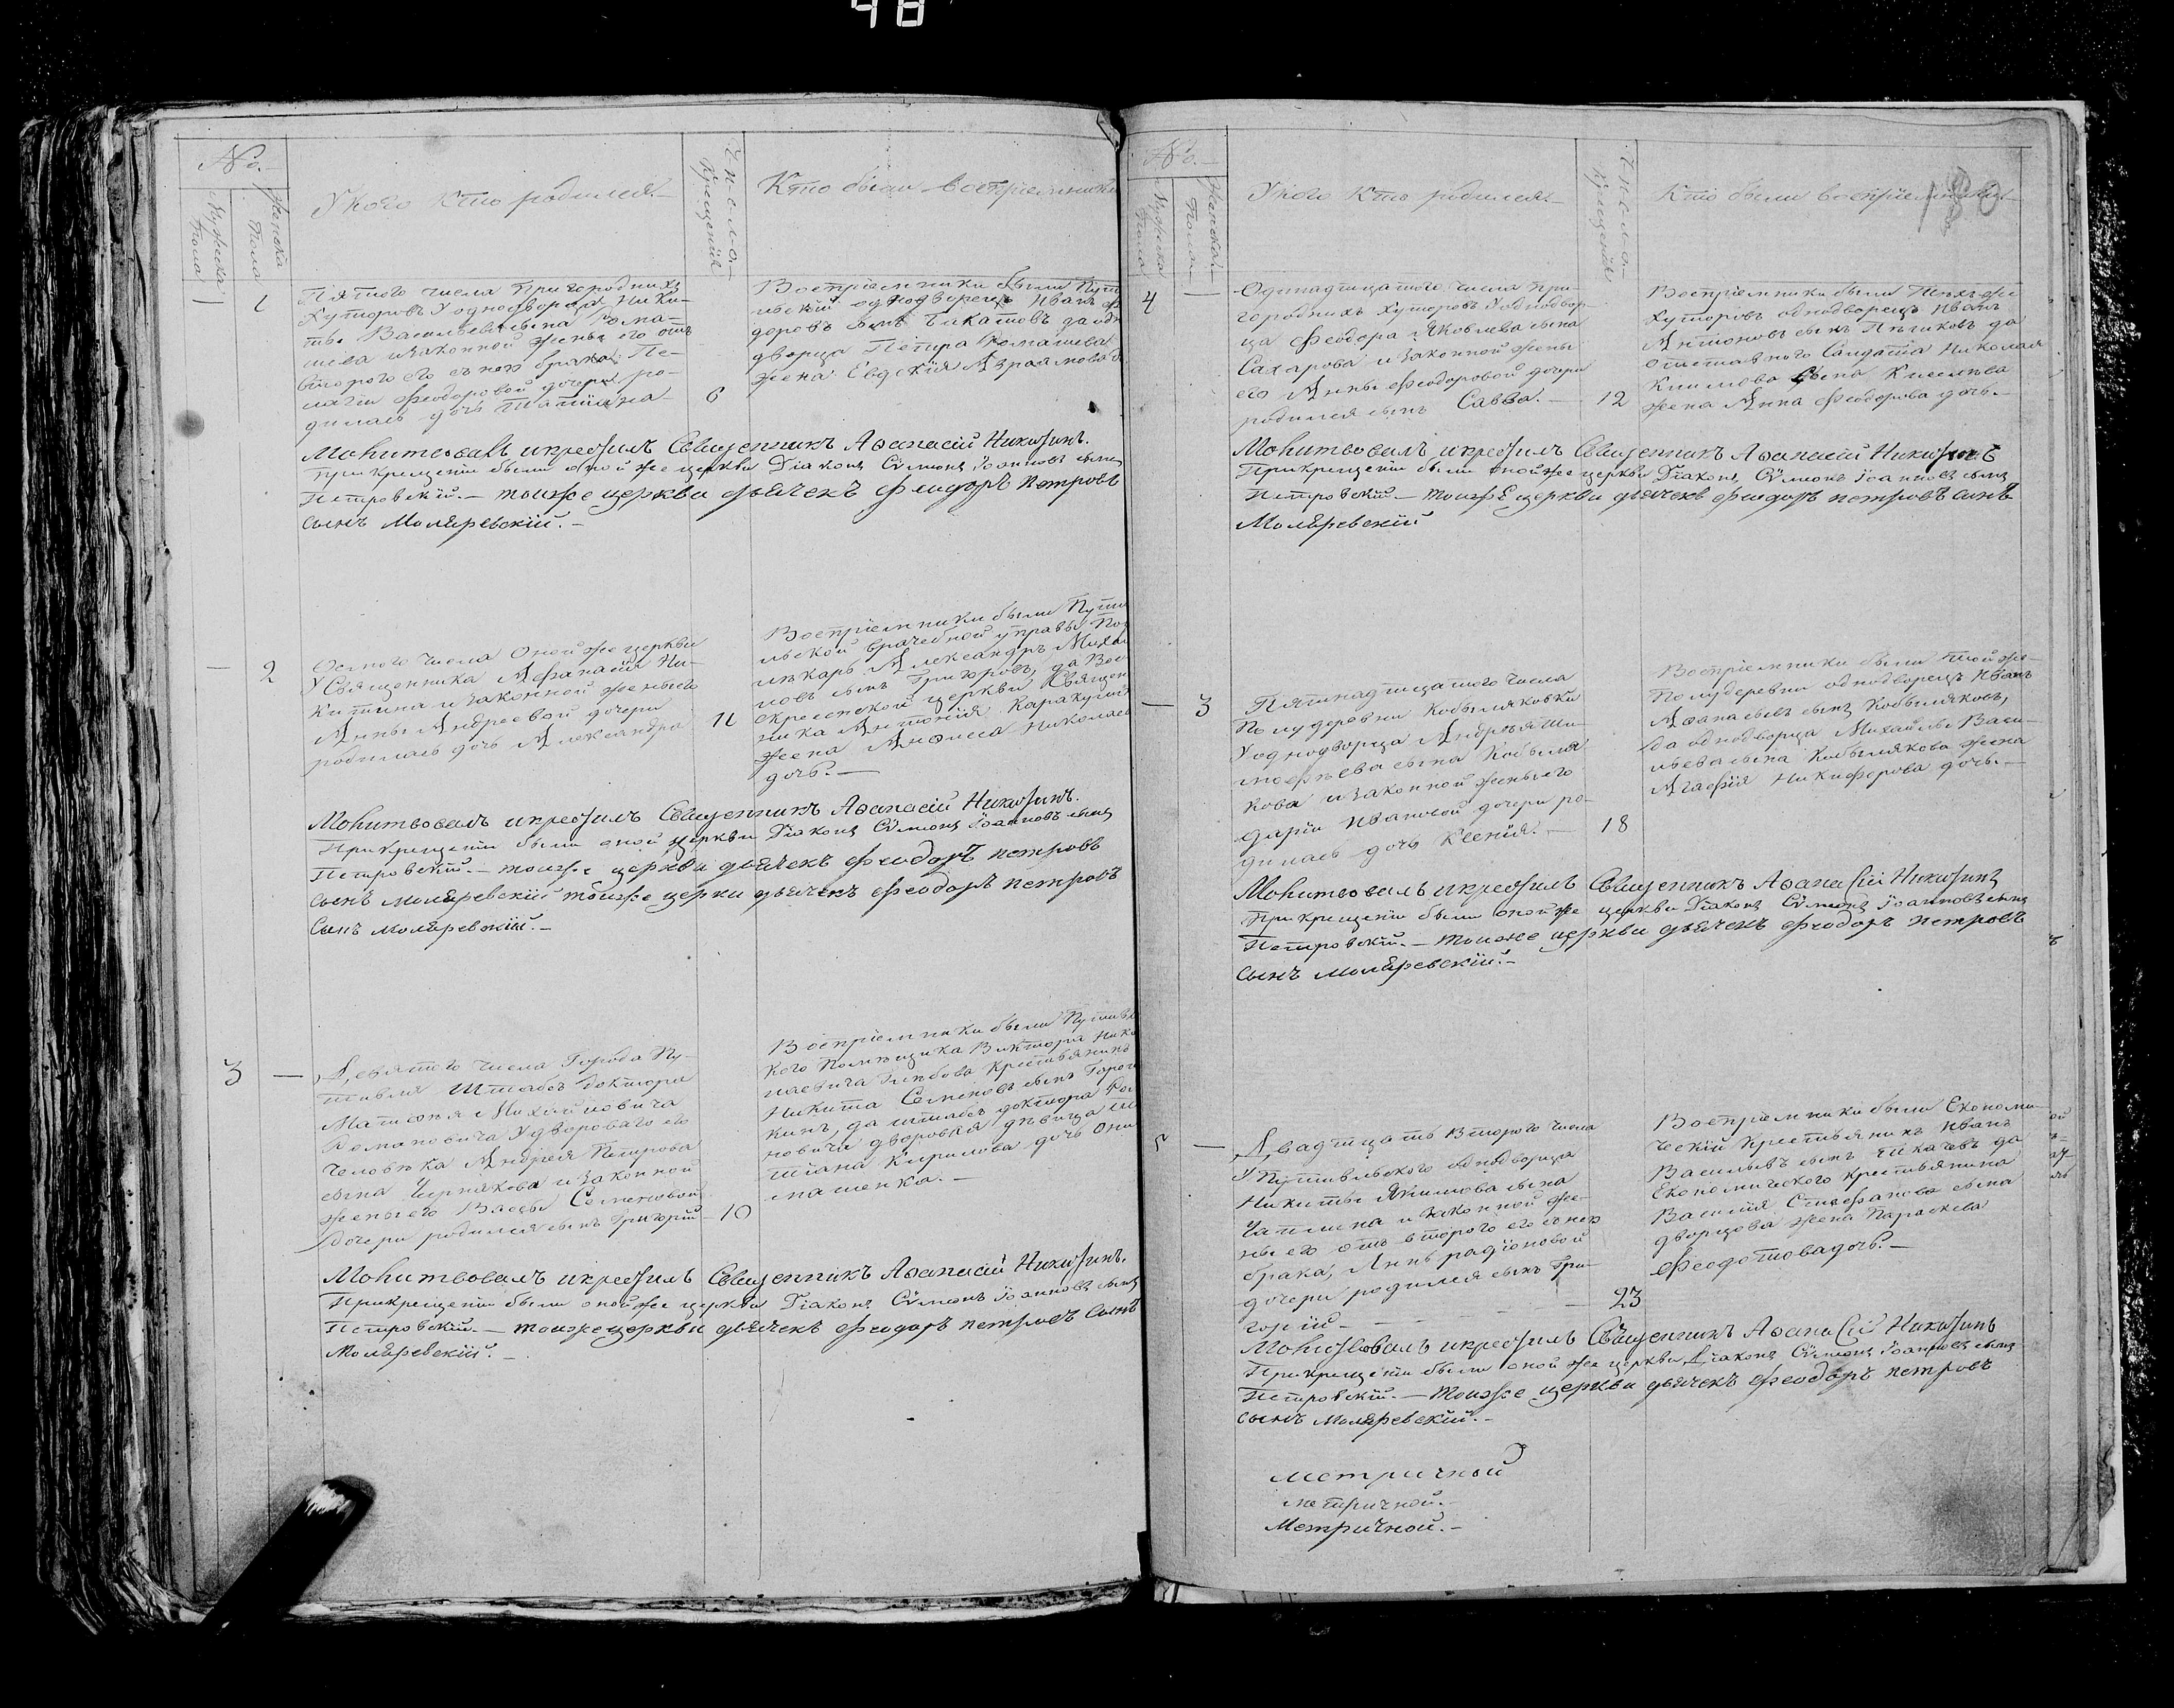 48
No.
Мужеска Пола
Женска Пола
У кого кто родился.
Число Крещенія
Кто были восприемники
1
Пятого числа Пригородних
Хуторовъ У однодворца Ники-
ты Васильева сына Рома-
шева изаконной жены его отъ
второго его съ нею брака, Пе-
лагіи Феодоровой дочери ро-
дилась дочь Татіана
6
Восприемники были Пути
льскій однодворецъ Иванъ Фе
доровъ сынъ да одн
дворца Петра Ромашева
жена Евдокія Авраамова
Молитвовалъ икрестилъ Священникъ Афанасій Никитинъ.
При крещеніи были оной же церкви Діаконъ Сѵмеонъ Іоанновъ сынъ
Петровскій. — тоижѐ церкви дьячекъ Феодоръ петровъ
сынъ Моляревскій. —
— 2
Осмого числа Оной же церкви
У Священника Афанасія Ни-
китина изаконной жены его
Анны Андреевой дочери
родилась дочь Александра
11
Восприемники были Пути
льской врачебной управы По
лѣкарь Александръ Михаи
ловъ сынъ Григоровъ, да Вос
кресенской церкви, Священ
ника Антонія Каракули
жена Анфиса Николаев
дочь. —
Молитвовалъ икрестилъ Священникъ Афанасій Никитинъ.
При крещеніи были оной церкви Діаконъ Сѵмеонъ Іоанновъ сынъ
Петровскій. — тоиже церкви дьячекъ Феодоръ петровъ
сынъ моляревскій тоиже церкви дьячекъ Феодоръ петровъ
сынъ моляревскій. —
3 —
Девятого числа Города Пу-
тивля Штабъ доктора
Матфея Михайловича
Романовича У двороваго его
человѣка Андрея Петрова
сына Чернякова изаконной
жены его Вассы Семеновой
дочери родился сынъ Григорій
10
Восприемники были Путивл
кого Помѣщика Виктора Нико
лаевича Глебова Крестьянинъ
Никита Семеновъ сынъ Горо
кинъ, да штабъ доктора Ро
новича дворовая дѣвица
тіана Кирилова дочь Они
мащенка. —
Молитвовалъ икрестилъ Священникъ Афанасій Никитинъ.
При крещеніи были оной же церкви Діаконъ Сѵмеонъ Іоанновъ сынъ
Петровскій. — тоиже церкви дьячекъ Феодоръ петровъ сынъ
Моляревскій. —
No.
Мужеска Пола
Женска Пола
У кого кто родился.
Число Крещенія
Кто были восприемники
4 —
Одинадцатого числа при-
городнихъ Хуторовъ У однодвор-
ца Феодора Яковлева сына
Сахарова изаконной жены
его Анны Феодоровой дочери
родился сынъ Савва. —
12
Восприемники были Тѣхъ же
Хуторовъ однодворецъ Иванъ
Антоновъ сынъ да
отставного Солдата Николая
Климова сына Киселева
жена Анна Феодорова дочь. —
Молитвовалъ икрестилъ Священникъ Афанасій Никитинъ
При крещеніи были оной же церкви Діаконъ Сѵмеонъ Іоанновъ сынъ
Петровскій — тоиже церкви дьячекъ Феодоръ петровъ сынъ
Моляревскій
— 3
Пятинадцатого числа
Полудеревни Кобыляковки
У однодворца Андрея Ти-
мофѣева сына Кобыля-
кова изаконной жены его
Даріи Ивановой дочери ро-
дилась дочь Ксенія. —
18
Восприемники были тойже
Полудеревни однодворецъ Иванъ
Афанасьевъ сынъ Кобыляковъ,
да однодворца Михайлы Васи-
льева сына Кобылякова жена
Агафія Никифорова дочь. —
Молитвовалъ икрестилъ Священникъ Афанасій Никитинъ
При крещеніи были оной же церкви Діаконъ Сѵмеонъ Іоанновъ сынъ
Петровскій. — тоиже церкви дьячекъ Феодоръ петровъ
сынъ моляревскій. —
5 —
Двадцать второго числа
У Путивльского однодворца
Никиты Якимова сына
Чаплина изаконной же-
ны его отъ второго его съ нею
брака, Анны радіоновой
дочери родился сынъ Гри-
горій — — —
23
Восприемники были Економи-
ческій крестьянинъ Иванъ
Васильевъ сынъ да
Економического крестьянина
Василія Стефанова сына
дворцова жена Параскева
Феодотова дочь. —
Молитвовалъ икрестилъ Священникъ Афанасій Никитинъ
При крещеніи были оной же церкви Діаконъ Сѵмеонъ Іоанновъ сынъ
Петровскій. — тоиже церкви дьячекъ Феодоръ петровъ
сынъ моляревскій. —
метричной
метричной. —
Метричной. —